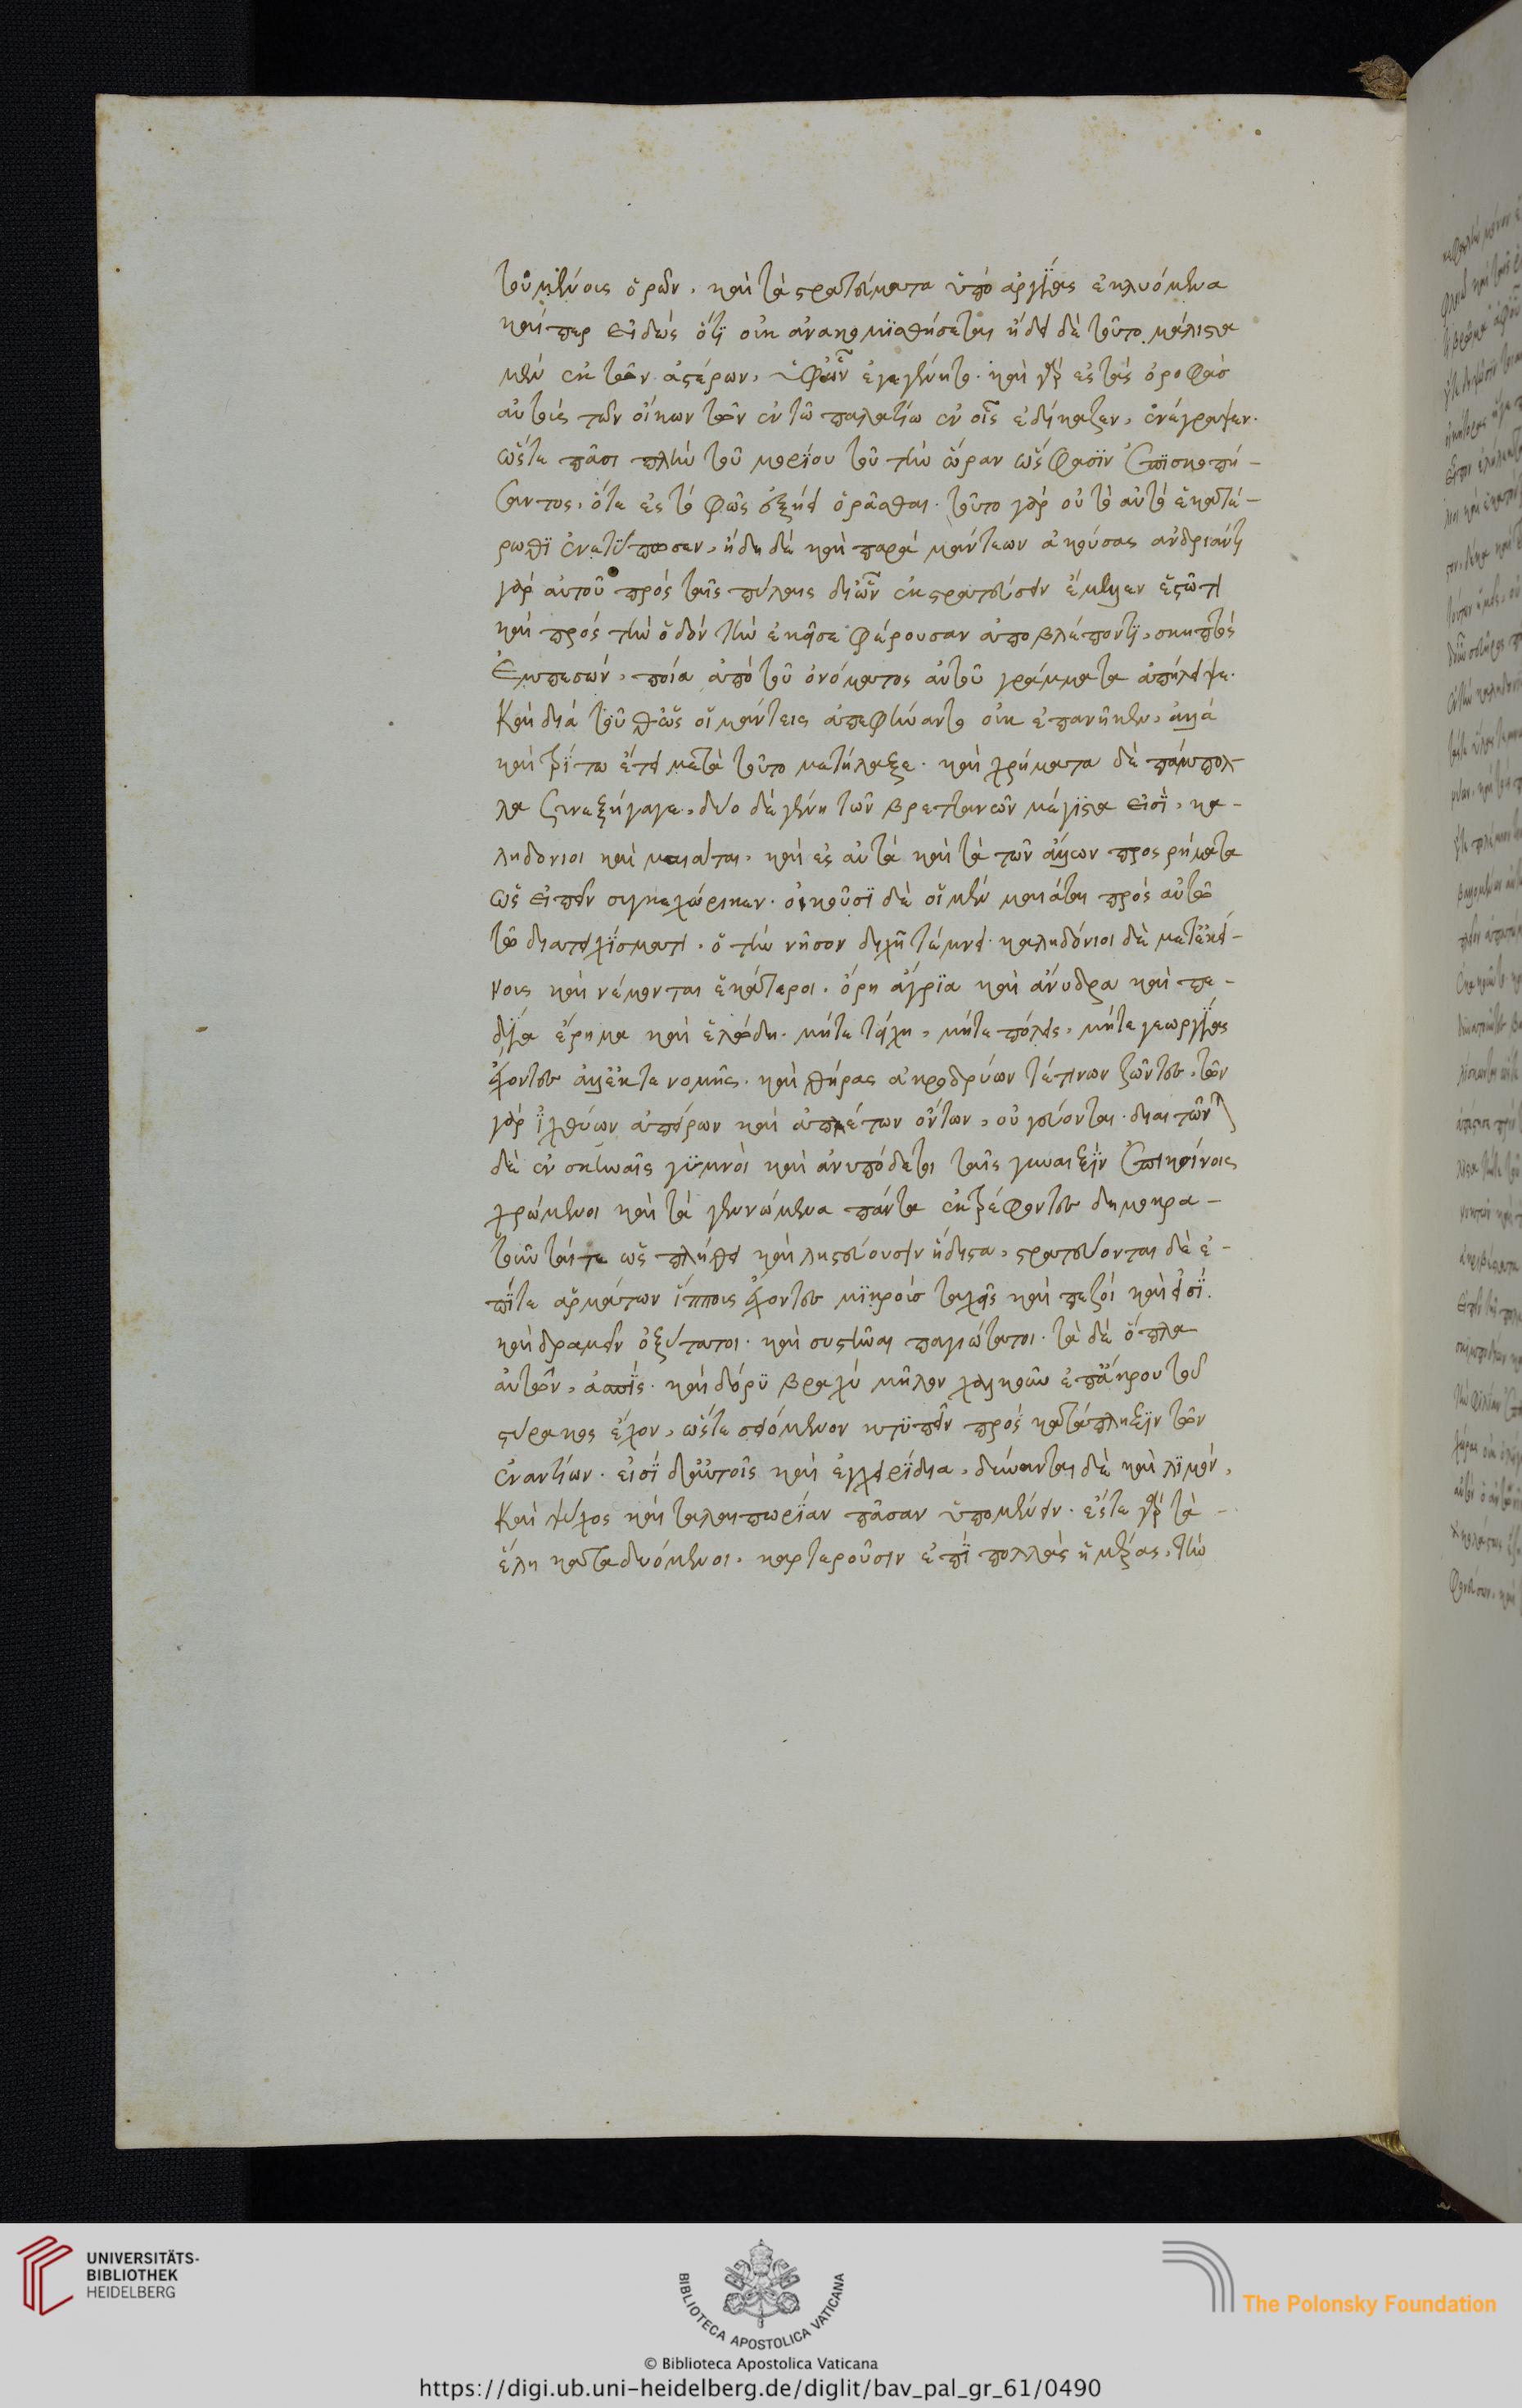 τουμένοις ὁρῶν. καὶ τὰ στρατεύματα ὑπὸ ἀργίας ἐκλυόμενα
καίπερ εἰδὼς ὅτι οὐκ ἀνακομισθήσεται ᾔδει δὲ τοῦτο μάλιστα
μὲν ἐκ τῶν ἀστέρων, ὑφ' ὧν ἐγεγένητο. καὶ γὰρ ἐς τὰς ὀροφὰς
αὐτὰς τῶν οἴκων τῶν ἐν τῷ παλατίῳ ἐν οἷς ἐδίκαζεν, ἐνέγραψεν.
ὥστε πᾶσι πλὴν τοῦ μορίου τοῦ τὴν ὥραν ὥς φασιν ἐπισκοπή-
σαντος, ὅτε ἐς τὸ φῶς ἐξῄει ὁρᾶσθαι. τοῦτο γὰρ οὐ τὸ αὐτὸ ἑκατέ-
ρωθι ἐνετύπωσεν, ἤδη δὲ καὶ παρὰ μάντεων ἀκούσας ἀνδριάντι
γὰρ αὐτοῦ πρὸς ταῖς πύλαις δι' ὧν ἐκστρατεύσειν ἔμελλεν ἑστῶτι
καὶ πρὸς τὴν ὁδὸν τὴν ἐκεῖσε φέρουσαν ἀποβλέποντι, σκηπτὸς
ἐμπεσών, ποία ἀπὸ τοῦ ὀνόματος αὐτοῦ γράμματα ἀπήλειψε.
Καὶ διὰ τοῦθ' ὡς οἱ μάντεις ἀπεφήναντο οὐκ ἐπανῆκεν, ἀλλὰ
καὶ τρίτῳ ἔτει μετὰ τοῦτο μετήλλαξε. καὶ χρήματα δὲ πάμπολ
λα συνεξήγαγε, δύο δὲ γένη τῶν βρεττανῶν μέγιστα εἰσὶ, κα-
ληδόνιοι καὶ μαιάται, καὶ ἐς αὐτὰ καὶ τὰ τῶν ἄλλων προσρήματα
ὡς εἰπεῖν συγκεχώρηκεν. οἰκοῦσι δὲ οἱ μὲν μαιάται πρὸς αὐτῷ
τῷ διατειχίσματι. ὃ τὴν νῆσον διχῇ τέμνει. καληδόνιοι δὲ μετ' ἐκεί-
νοις καὶ νέμονται ἑκάτεροι. ὄρη ἄγρια καὶ ἄνυδρα καὶ πε-
δία ἔρημα καὶ ἑλώδη. μήτε τείχη, μήτε πόλεις, μήτε γεωργίας
ἔχοντες ἀλλ' ἔκ τε νομῆς. καὶ θήρας ἀκροδρύων τέ τινων ζῶντες, τῶν
γὰρ ἰχθύων ἀπείρων καὶ ἀπλέτων ὄντων, οὐ γεύονται. διαιτῶν)
δὲ ἐν σκηναῖς γυμνοὶ καὶ ἀνυπόδετοι ταῖς γυναιξὶν ἐπικοίνοις
χρώμενοι καὶ τὰ γεννώμενα πάντα ἐκτρέφοντες δημοκρα-
τοῦνταί τε ὡς πλήθει καὶ λῃστεύουσιν ἥδιστα, στρατεύονται δὲ ἐ-
πί τε ἁρμάτων ἵππους ἔχοντες μικροὺς ταχεῖς καὶ πεζοὶ καὶ εἰσὶ.
καὶ δραμεῖν ὀξύτατοι. καὶ συστῆναι παγιώτατοι. τὰ δὲ ὅπλα
αὐτῶν, ἀσπὶς. καὶ δόρυ βραχὺ μῆλον χαλκοῦν ἐπ' ἄκρου τοῦ
στύρακος ἔχον, ὥστε σειόμενον κτυπεῖν πρὸς κατάπληξιν τῶν
ἐναντίων. εἰσὶ δ' αὐτοῖς καὶ ἐγχειρίδια, δύνανται δὲ καὶ λιμὸν,
Καὶ ψύχος καὶ ταλαιπωρίαν πᾶσαν ὑπομένειν. ἔς τε γὰρ τὰ
ἕλη καταδυόμενοι, καρτεροῦσιν ἐπὶ πολλὰς ἡμέρας, τὴν
UNIVERSITÄTS-
BIBLIOTHEK
HEIDELBERG
BIBLIOTECA APOSTOLICA VATICANA
The Polonsky Foundation
© Biblioteca Apostolica Vaticana
https://digi.ub.uni-heidelberg.de/diglit/bav_pal_gr_61/0490